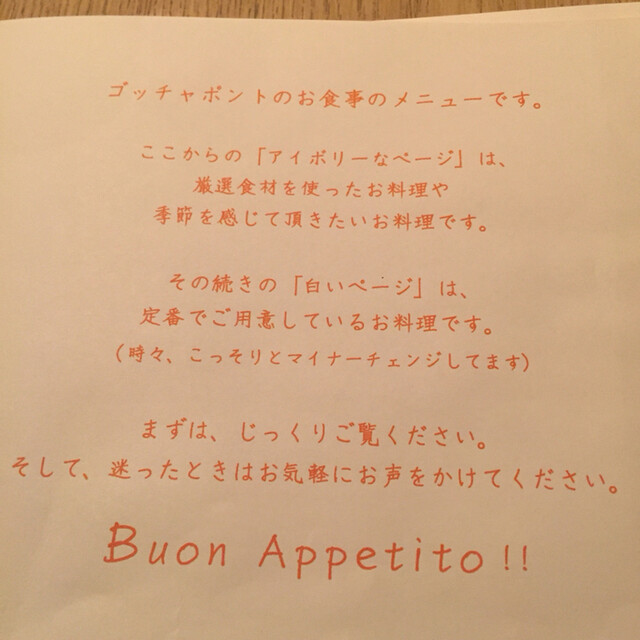 ゴッチャポントのお食事のメニューです。
ここからの「アイボリーなページ」は、
厳選食材を使ったお料理や
季節を感じて頂きたいお料理です。
その続きの「白いページ」は、
定番でご用意しているお料理です。
(時々、こっそりとマイナーチェンジしてます)
まずは、じっくりご覧ください。
そして、迷ったときはお気軽にお声をかけてください。
Buon Appetito!!